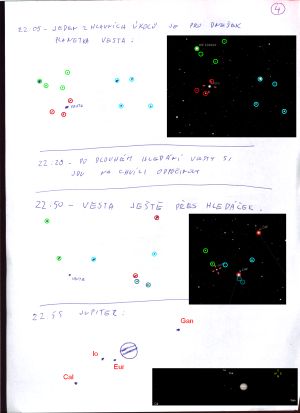 4
22:05 - JEDEN Z HLAVNÍCH ÚKOLŮ JE PRO DNEŠEK
PLANETKA VESTA.
VESTA
22:20 - PO DLOUHÉM HLEDÁNÍ VESTY SI
JDU NA CHVÍLI ODPOČINOUT
22:50 - VESTA JEŠTĚ PŘES HLEDÁČEK.
VESTA
22:55 JUPITER:
Gan
Io
Eur
Cal